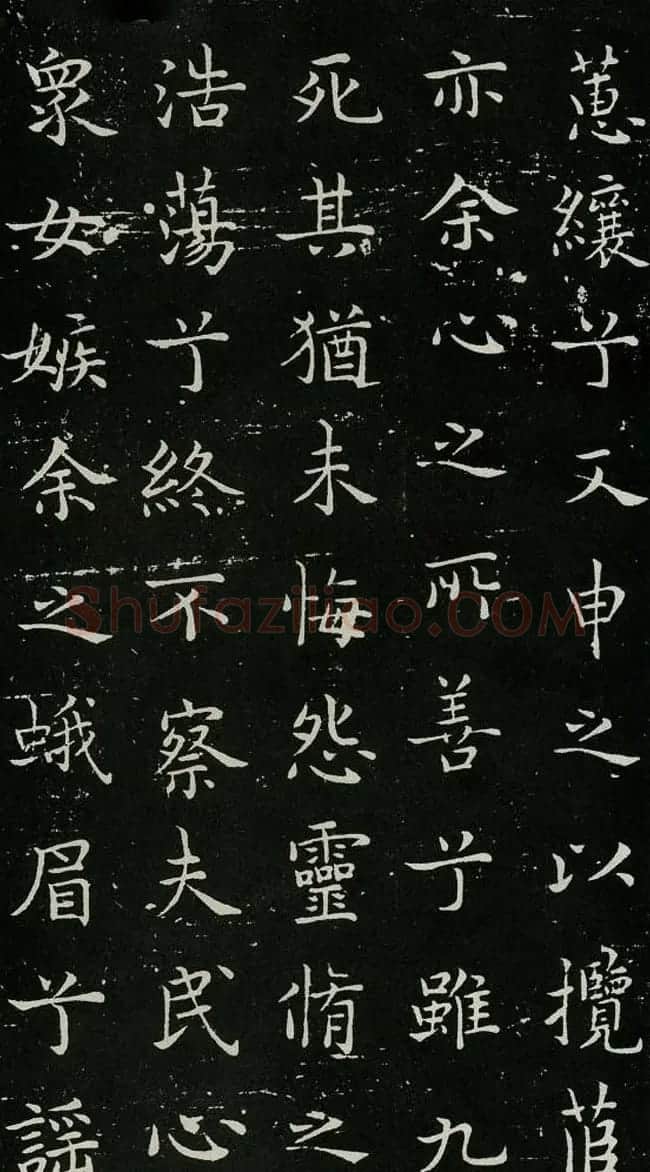 蕙纕兮又申之以攬茝
亦余心之所善兮雖九
死其猶未悔怨靈脩之
浩蕩兮終不察夫民心
衆女嫉余之蛾眉兮謠
Shufaziliao.COM